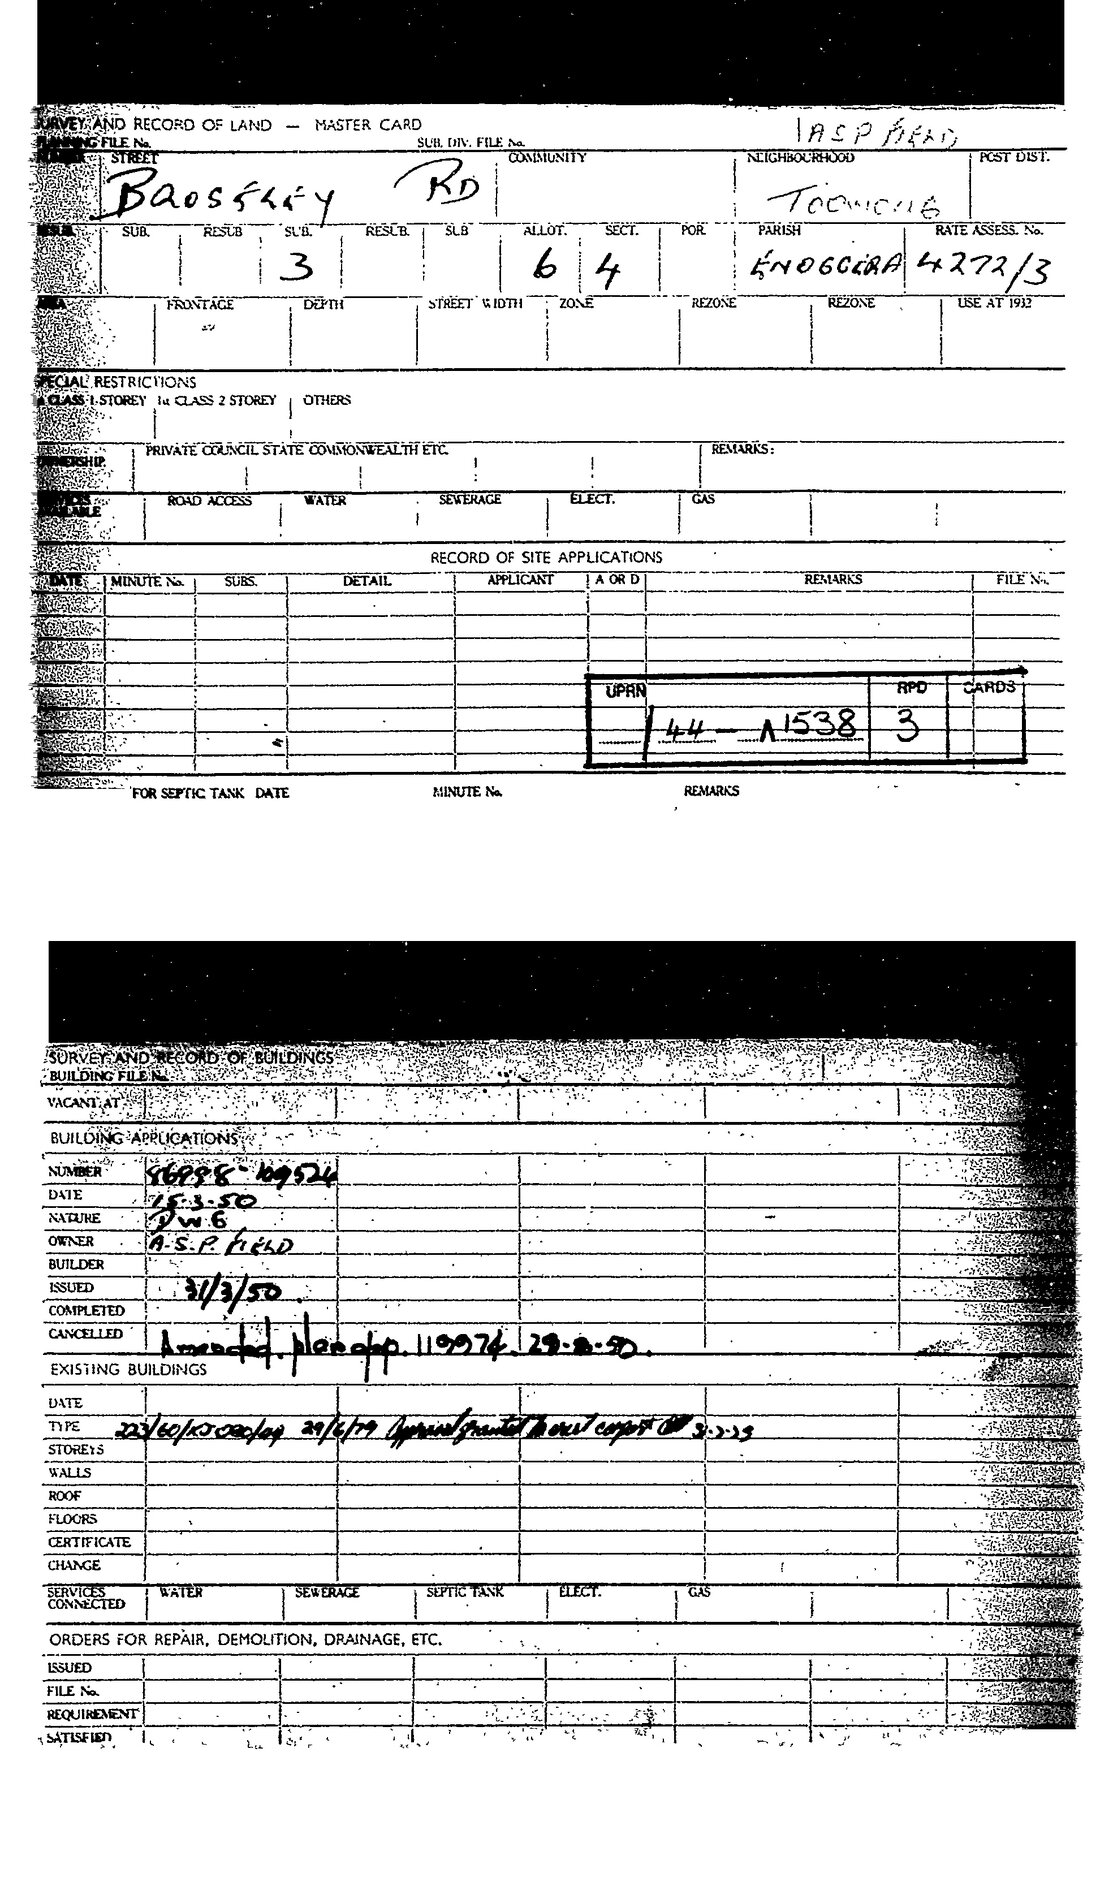 SURVEY AND RECORD OF LAND — MASTER CARD
PLANNING FILE No. SUB. DIV. FILE No. ASP FIELD
NUMBER STREET COMMUNITY NEIGHBOURHOOD POST DIST.
BROSELEY RD TOOWONG
RESUB. SUB. RESUB SUB. RESUB. SUB ALLOT. SECT. POR. PARISH RATE ASSESS. No.
3 6 4 ENOGGERA 4272/3
AREA FRONTAGE DEPTH STREET WIDTH ZONE REZONE REZONE USE AT 1932
SPECIAL RESTRICTIONS
CLASS 1 STOREY 1st CLASS 2 STOREY OTHERS
OWNERSHIP PRIVATE COUNCIL STATE COMMONWEALTH ETC. REMARKS:
SERVICES AVAILABLE ROAD ACCESS WATER SEWERAGE ELECT. GAS
RECORD OF SITE APPLICATIONS
DATE MINUTE No. SUBS. DETAIL APPLICANT A OR D REMARKS FILE No.
UPRN RPD CARDS
44 - A1538 3
FOR SEPTIC TANK DATE MINUTE No. REMARKS
SURVEY AND RECORD OF BUILDINGS
BUILDING FILE No.
VACANT AT
BUILDING APPLICATIONS
NUMBER 86998 - 109524
DATE 15.3.50
NATURE DWG
OWNER A.S.P. FIELD
BUILDER
ISSUED 31/3/50.
COMPLETED
CANCELLED Amended plan app. 119974.
EXISTING BUILDINGS
DATE
TYPE 29/6/79 Approval granted to erect carport
STOREYS
WALLS
ROOF
FLOORS
CERTIFICATE
CHANGE
SERVICES CONNECTED WATER SEWERAGE SEPTIC TANK ELECT. GAS
ORDERS FOR REPAIR, DEMOLITION, DRAINAGE, ETC.
ISSUED
FILE No.
REQUIREMENT
SATISFIED